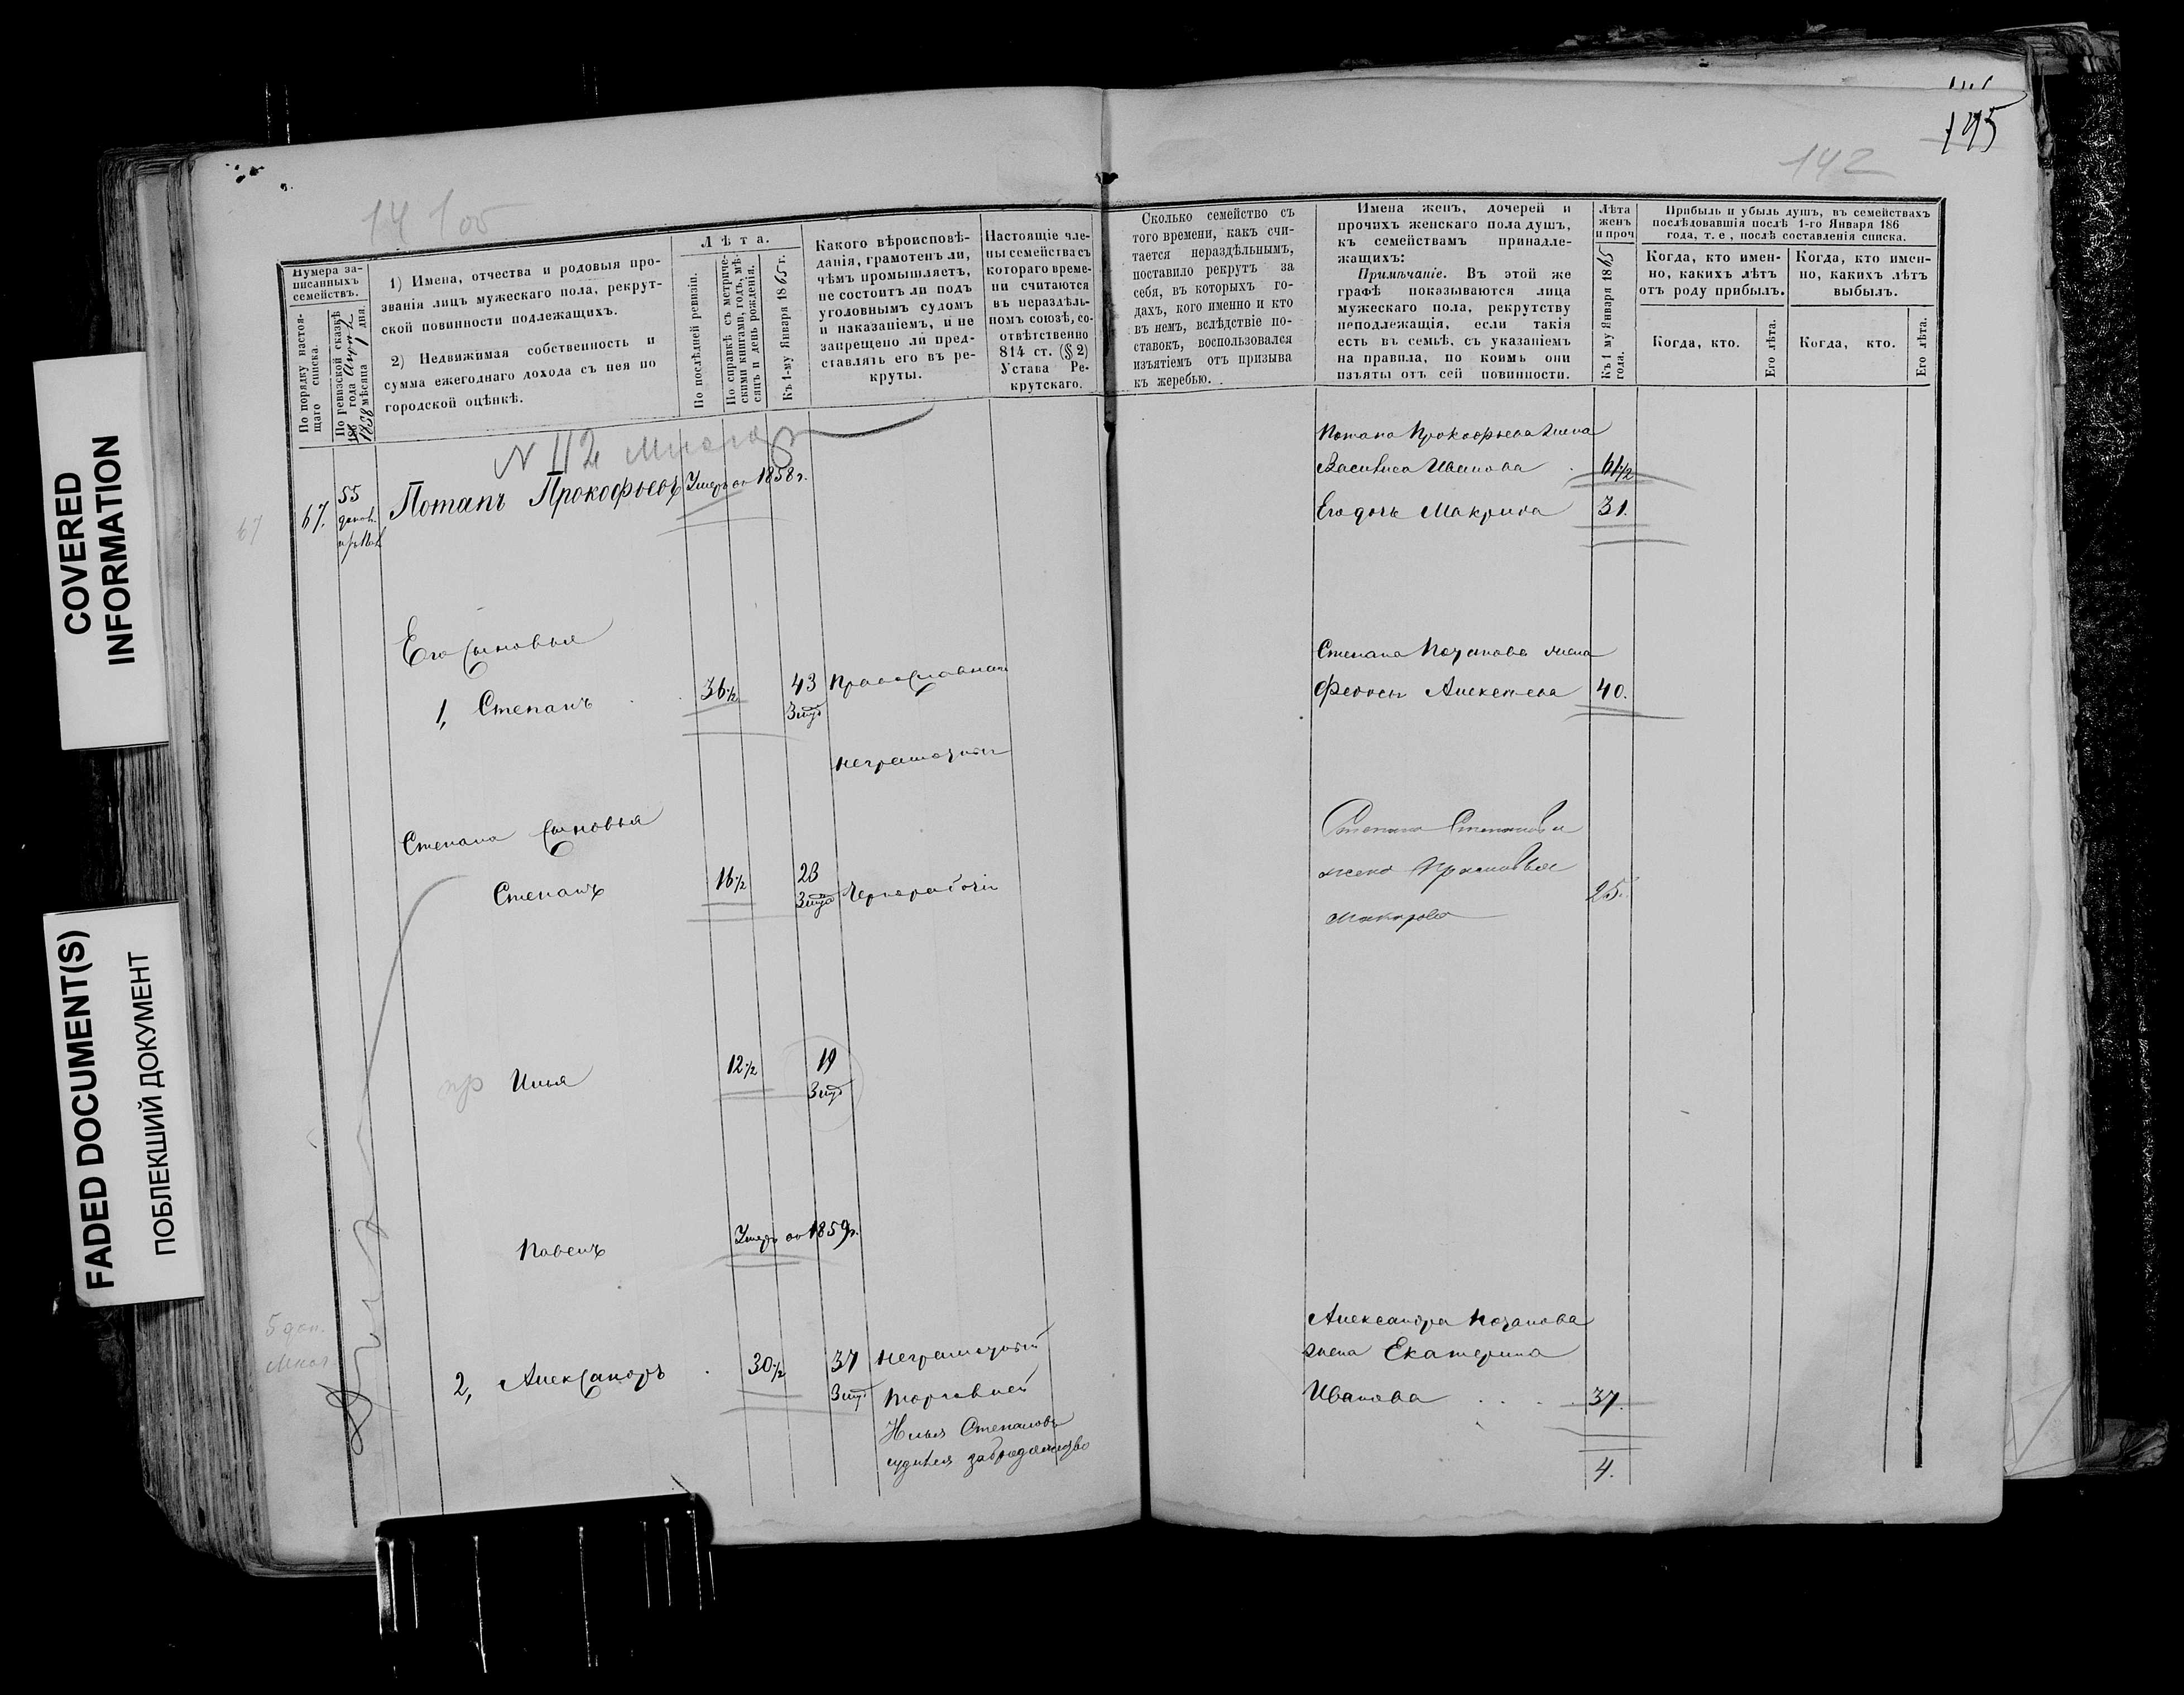 195
142
14
Нумера за-
писанныхъ
семействъ.
По порядку настоя-
щаго списка.
По ревизской сказкѣ
186 года
1858 мѣсяца 1 дня.
1) Имена, отчества и родовыя про-
званія лицъ мужескаго пола, рекрут-
ской повинности подлежащихъ.
2) Недвижимая собственность и
сумма ежегоднаго дохода съ нея по
городской оцѣнкѣ.
Лѣта.
По послѣдней ревизіи.
По справкѣ съ метриче-
скими книгами, годъ, мѣ-
сяцъ и день рожденія.
Къ 1-му Января 1865 г.
Какого вѣроисповѣ-
данія, грамотенъ ли,
чѣмъ промышляетъ,
не состоитъ ли подъ
уголовнымъ судомъ
и наказаніемъ, и не
запрещено ли пред-
ставлять его въ ре-
круты.
Настоящіе чле-
ны семейства съ
котораго време-
ни считаются
въ нераздѣль-
номъ союзѣ, со-
отвѣтственно
814 ст. (§ 2)
Устава Ре-
крутскаго.
Сколько семейство съ
того времени, какъ счи-
тается нераздѣльнымъ,
поставило рекрутъ за
себя, въ которыхъ го-
дахъ, кого именно и кто
въ немъ, вслѣдствіе по-
ставокъ, воспользовался
изъятіемъ отъ призыва
къ жеребью.
Имена женъ, дочерей и
прочихъ женскаго пола душъ,
къ семействамъ принадле-
жащихъ:
Примѣчаніе. Въ этой же
графѣ показываются лица
мужескаго пола, рекрутству
неподлежащія, если такія
есть въ семьѣ, съ указаніемъ
на правила, по коимъ они
изъяты отъ сей повинности.
Лѣта
женъ
и проч
Къ 1 му Января 1865
года.
Прибыль и убыль душъ, въ семействахъ
послѣдовавшія послѣ 1-го Января 186
года, т. е., послѣ составленія списка.
Когда, кто имен-
но, какихъ лѣтъ
отъ роду прибылъ.
Когда, кто имен-
но, какихъ лѣтъ
выбылъ.
Когда, кто.
Его лѣта.
Когда, кто.
Его лѣта.
N 112
67
67.
55
Потапъ Прокофьевъ
Умеръ въ 1858 г.
Потапа Прокофьева жена
Василиса Иванова 61½
Его дочь Макрина 31.
Его сыновья
1, Степанъ 36½ 43 Православнаго
Степана Потапова жена
Федосья Алексѣева 40.
неграмотный
Степана сыновья
Степанъ 16½ 23 Чернорабочій
Степана Степанова
жена Прасковья 25.
Макарова
пр Илья 12½ 19
Павелъ Умеръ въ 1859 г.
Александра Потапова
жена Екатерина
Иванова 37.
2, Александръ 30½ 37 неграмотный
торговлей
Илья Степановъ
судился за бродяжество
4.
COVERED
INFORMATION
FADED DOCUMENT(S)
ПОБЛЕКШИЙ ДОКУМЕНТ